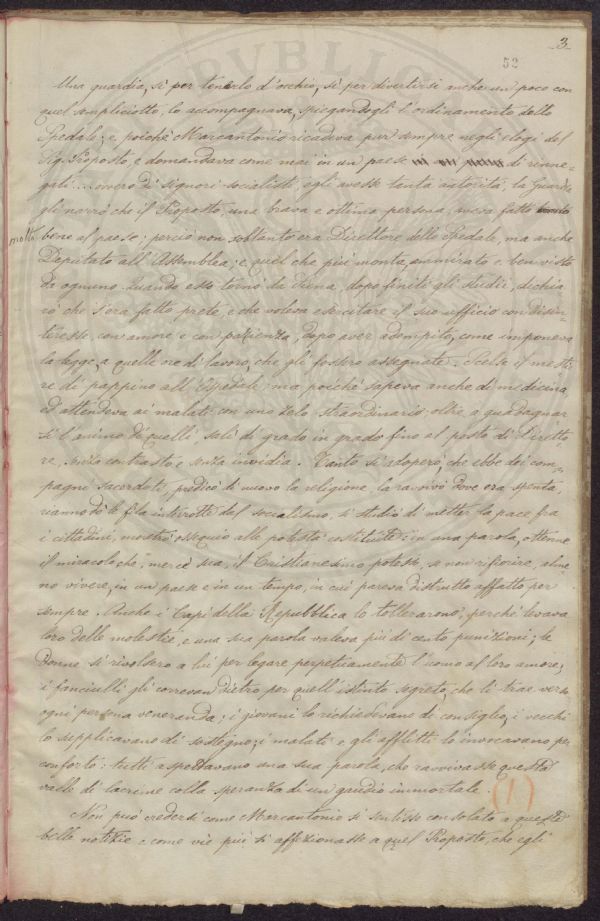 3
52
Una guardia, sì per tenerlo d'occhio, sì per divertirsi anche un poco con
quel sempliciotto, lo accompagnava, spiegandogli l'ordinamento dello
Spedale; e poichè Marcantonio ricadeva pur sempre negli elogi del
Sig. Proposto, e domandava come mai in un paese di rinne-
gati .... ovvero di signori socialisti, egli avesse tanta autorità, la Guardia
gli narrò che il Proposto, una brava e ottima persona, aveva fatto
molto bene al paese; perciò non soltanto era Direttore dello Spedale, ma anche
Deputato all'Assemblea; e quel che più monta, ammirato e ben visto
da ognuno. Quando esso tornò da Siena, dopo finiti gli studii, dichia-
rò che s'era fatto prete, e che voleva esercitare il suo ufficio con disin-
teresse, con amore e con pazienza, dopo aver adempito, come imponeva
la legge, a quelle ore di lavoro, che gli fossero assegnate. Scelse il mestie-
re di pappino all'Ospedale; ma poichè sapeva anche di medicina,
ed attendeva ai malati con uno zelo straordinario, oltre a guadagnar
si l'animo di quelli, salì di grado in grado fino al posto di Diretto
re, senza contrasto e senza invidia. Tanto si adoperò, che ebbe dei com-
pagni sacerdoti, predicò di nuovo la religione, la ravvivò dove era spenta,
riannodò le fila interrotte dal socialismo, si studiò di metter la pace fra
i cittadini, mostrò ossequio alle potestà costituite: in una parola, ottenne
il miracolo che, mercè sua, il Cristianesimo potesse, se non rifiorire, alme
no vivere, in un paese e in un tempo, in cui pareva distrutto affatto per
sempre. Anche i Capi della Repubblica lo tollerarono, perchè levava
loro delle molestie, e una sua parola valeva più di cento punizioni; le
Donne si rivolsero a lui per legare perpetuamente l'uomo al loro amore;
i fanciulli gli correvan dietro per quell'istinto segreto, che li trae verso
ogni persona veneranda; i giovani lo richiedevano di consiglio, i vecchi
lo supplicavano di sostegno; i malati e gli afflitti lo invocavano per
conforto: tutti aspettavano una sua parola, che ravvivasse questa
valle di lacrime colla speranza di un gaudio immortale. (1)
Non può credersi come Marcantonio si sentisse consolato a queste
belle notizie e come vie più si affezionasse a quel Proposto, che egli